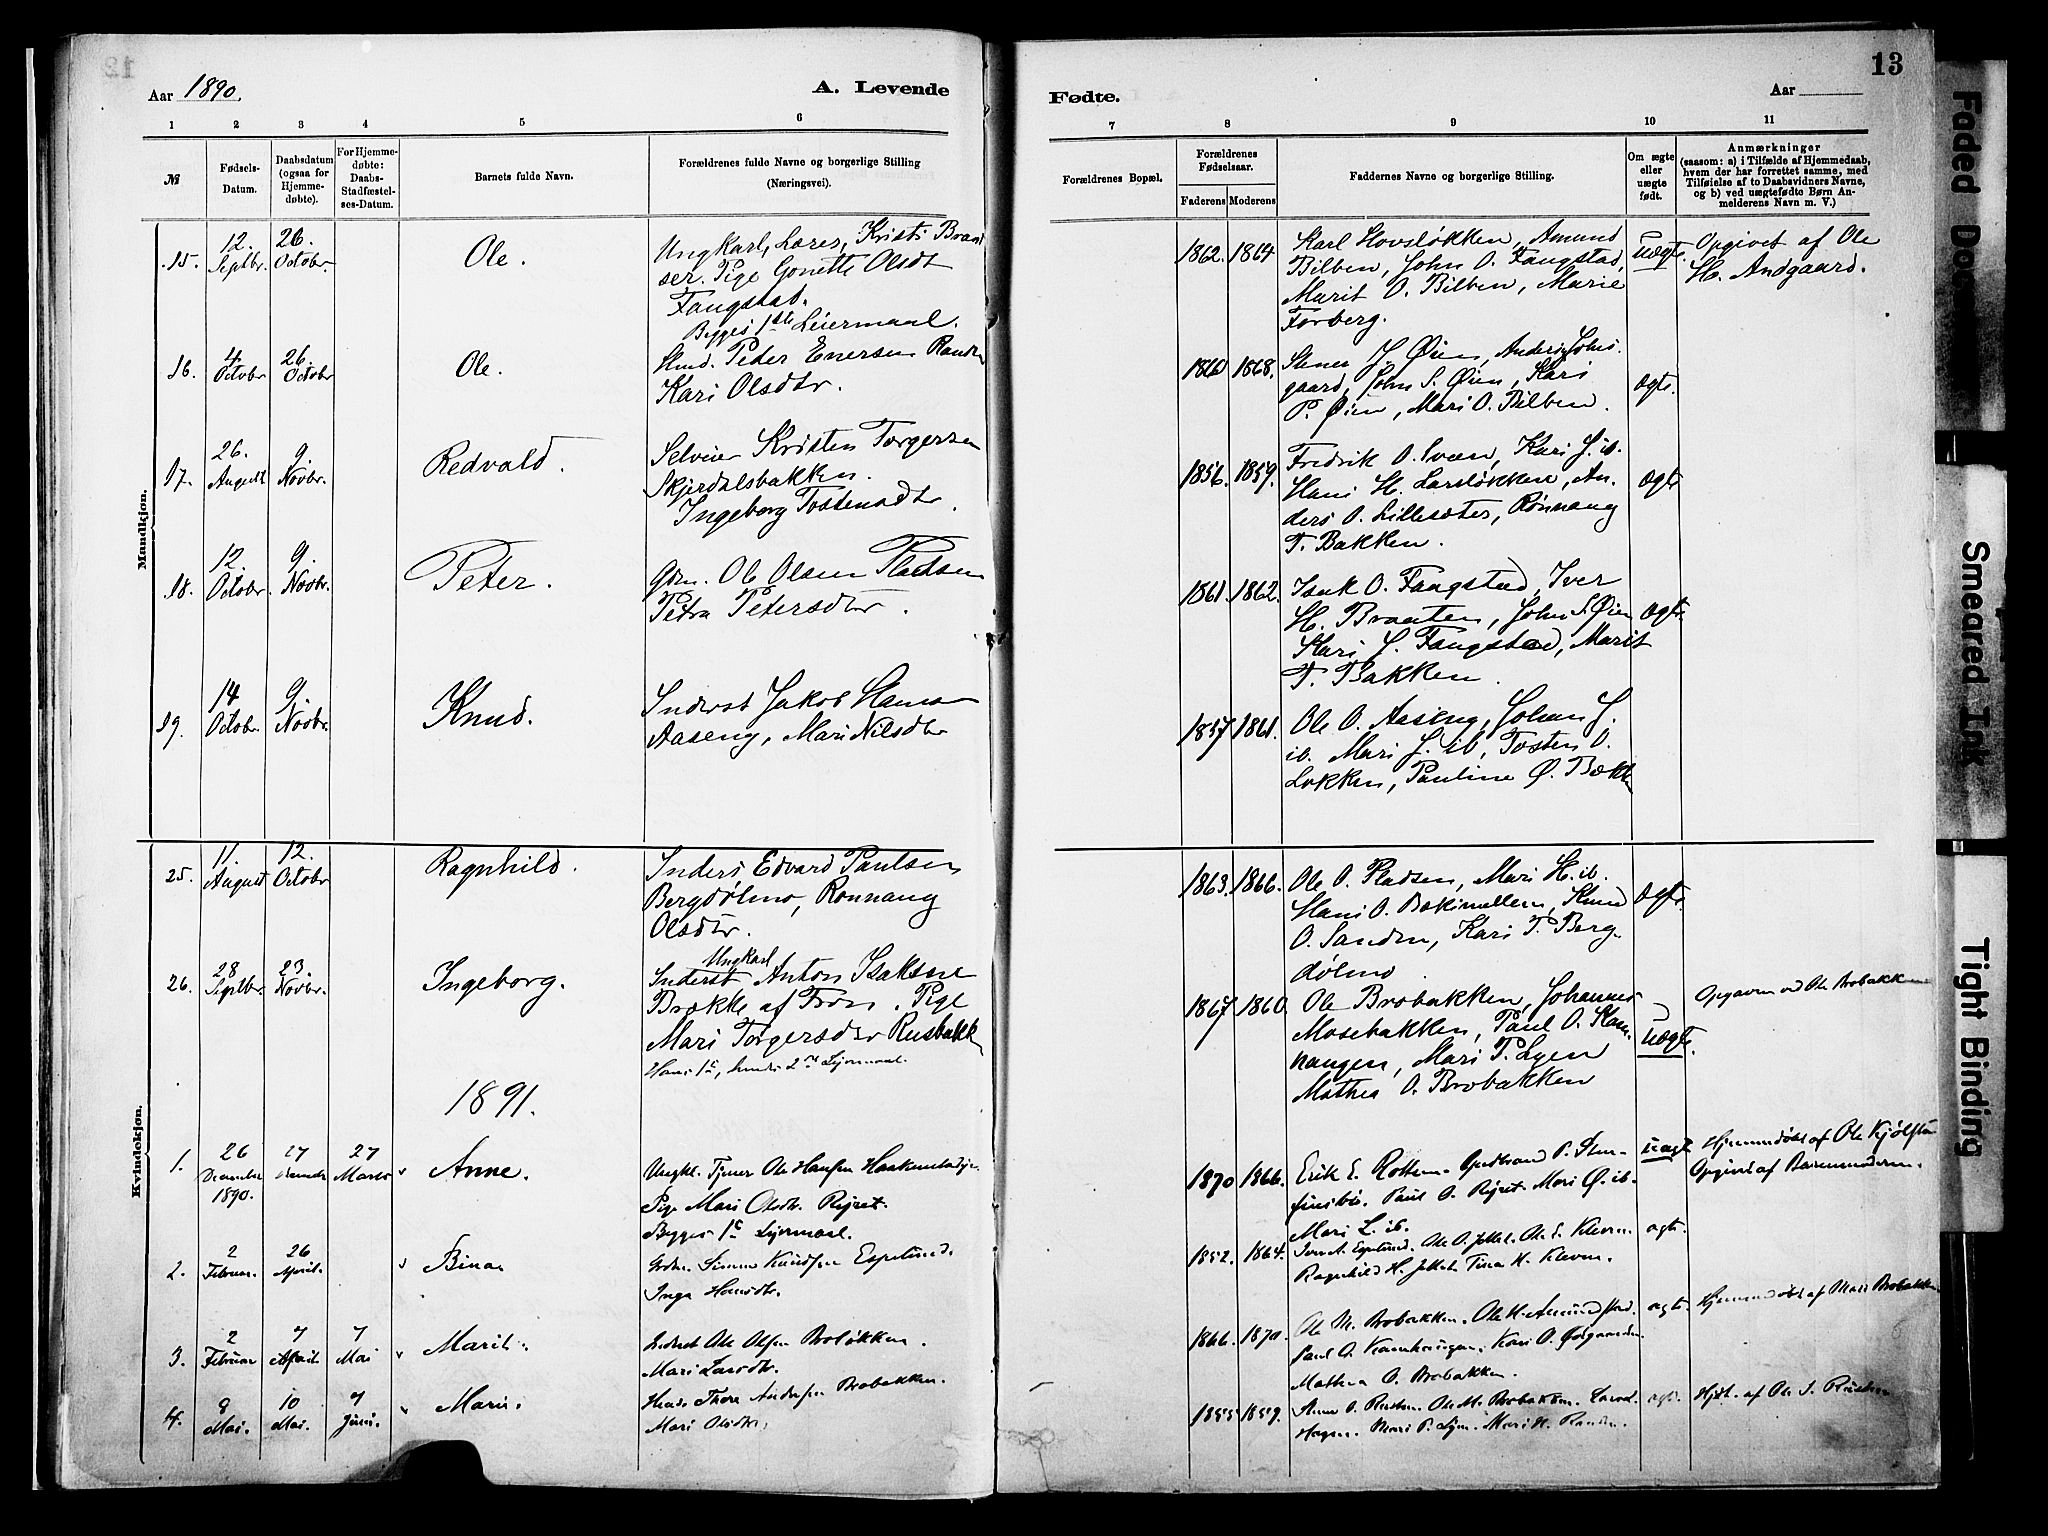 12
Aar 1890.
A. Levende
Fødte.
Aar
13
1 2 3 4 5 6
7 8 9 10 11
№
Fødsels-
Datum.
Daabsdatum
(ogsaa for
Hjemme-
døbte).
For Hjemme-
døbte:
Daabs-
Stadfæstel-
ses-Datum.
Barnets fulde Navn.
Forældrenes fulde Navne og borgerlige Stilling
(Næringsvei).
Forældrenes Bopæl.
Forældrenes
Fødselsaar.
Faderens Moderens
Faddernes Navne og borgerlige Stilling.
Om ægte
eller
uægte
født.
Anmærkninger
(saasom: a) i Tilfælde af Hjemmedaab,
hvem der har forrettet samme, med
Tilføielse af to Daabsvidners Navne,
og b) ved uægtefødte Børn An-
melderens Navn m. V.)
Mandkjøn.
15.
12.
Septbr.
26.
Octobr.
Ole.
Ungkarl, Lærer, Kristi
Pige Gonette Olsdt
Fangstad.
Begges 1ste Leiermaal.
1862. 1864
Karl Hovsløkken, Amund
Bilben, John O. Fangstad,
Marit O. Bilben, Marie
Forberg.
uægte
Opgivet af Ole
H. Andgaard.
16.
4
Octobr
26.
Octobr
Ole.
Hmd. Peter Enersen Randen
Kari Olsdtr.
1860 1868.
Stener J. Øien, Anders
gaard, John S. Øien, Kari
P. Øien, Mari O. Bilben.
ægte.
17.
26.
August
9.
Novbr.
Redvald.
Selveier Kristen Torgersen
Skjerdalsbakken.
Ingeborg Tostensdtr.
1856. 1859.
Fredrik O. Svæen, Kari J. ib.
Hans H. Larsløkken, An-
ders O. Lillesæter, Rønnaug
T. Bakken.
ægte
18.
12.
Octobr.
9.
Novbr.
Peter.
Gdm. Ole Olsen Pladsen
Petra Petersdtr.
1861. 1862.
Isak O. Fangstad, Iver
H. Braaten, John S. Øien
Kari J. Fangstad, Marit
T. Bakken.
ægte.
19.
14
Octobr.
9.
Novbr.
Knud.
Inderst Jakob Hansen
Aaseng, Mari Nilsdtr
1857 1861.
Ole O. Aaseng, Johan J.
ib. Mari J. ib, Tosten O.
Løkken, Pauline Ø. Bækk
Kvindekjøn.
25.
11.
August
12.
Octobr
Ragnhild.
Inders Edvard Paulsen
Bergdølmo, Rønnaug
Olsdtr.
1863. 1866.
Ole O. Pladsen, Mari H. ib.
Hans O. Knud
O. Sanden, Kari P. Berg-
dølmo.
ægte.
26.
28
Septbr.
23.
Novbr.
Ingeborg.
Ungkarl
Inderst Anton Isaksen
Brække af Fron, Pige
Mari Torgersdtr Rusbakk
Hans 1ste, hendes 2det Lejermaal.
1867 1860.
Ole Brobakken, Johannes
Mosebakken, Paul O. Kam-
haugen, Mari P. Lyen
Mathea O. Brobakken
uægte.
Opgaven ved Ole Brobakken
1891.
1.
26
December
1890.
27
December
27
Marts
Anne.
Ungkl. Tjener Ole Hansen
Pige Mari Olsdtr. Rijret.
Begges 1ste Lejermaal.
1870 1866.
Erik E. Rotten. Gudbrand P.
Paul O. Rijret. Mari Ø. ib.
Mari L. ib.
uægte
Hjemmedøbt af Ole
Opgivet af Barnemoderen.
2.
2
Februar.
26
April.
Bina
Gdm. Simen Knudsen Espelund.
Inga Hansdtr.
1852. 1864.
Iver A. Espelund. Ole O. Ole E. Kleven
Ragnhild H. Tina H. Kleven.
ægte.
3.
2
Februar
7
April
7
Mai
Marit.
Inderst Ole Olsen Broløkken.
Mari Larsdtr.
1866. 1870.
Ole M. Brobakken. Ole H.
Paul O. Kamhaugen. Kari O.
Mathea O. Brobakken.
ægte.
Hjemmedøbt af Mari Brobakken
4.
8
Mai.
10
Mai.
7
Juni.
Mari.
Thore Andersen Brobakken.
Mari Olsdtr.
1855 1859.
O. Rusten. Ole M. Brobakken.
Haugen. Mari P. Lyen. Mari H. Randen.
ægte.
Hjdt. af Ole S. Rusten
Faded Doc
Smeared Ink
Tight Binding